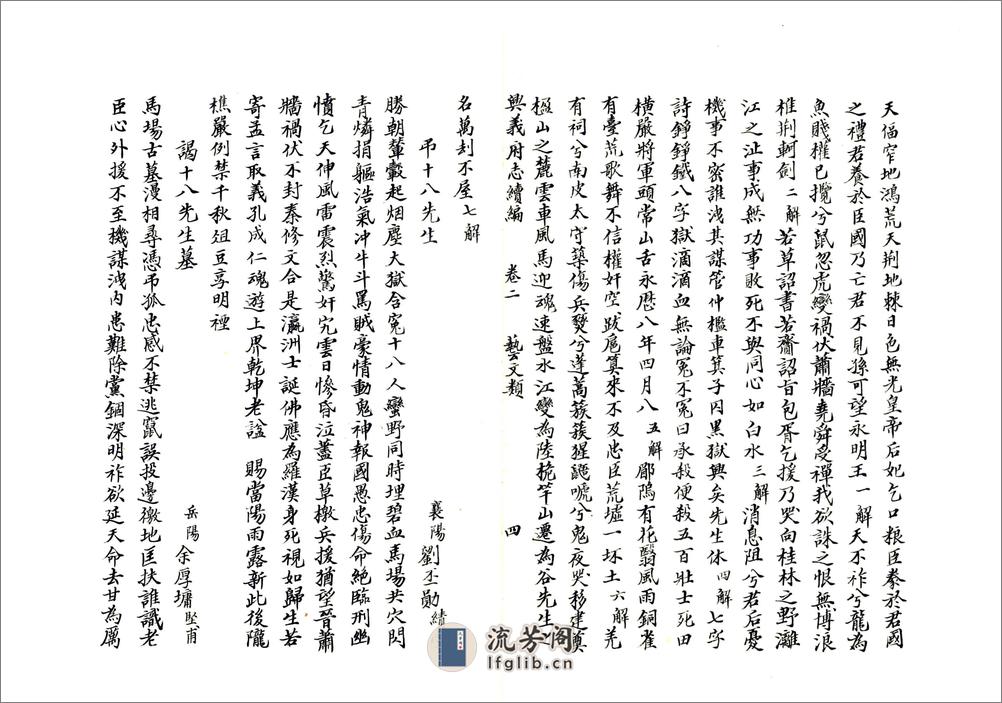 天偪窄地鴻荒天荆地棘日色無光皇帝后妃乞口粮臣豢於君國
之禮君養於臣國乃亡君不見孫可望永明王一解天不祚兮龍為
魚賤權已攬兮鼠忽虎變禍伏蕭牆堯舜受禪我欲誅之恨無博浪
椎荆軻劍二解若草詔書若齎詔旨包胥乞援乃哭向桂林之野灕
江之沚事成無功事敗死不與同心如白水三解消息阻兮君后憂
機事不密誰洩其謀管仲檻車箕子囚黑獄興矣先生休四解七字
詩錚錚鐵八字獄滴滴血無論冤不冤曰承殺便殺五百壯士死田
橫嚴將軍頭常山舌永厯八年四月八五解郿塢有花翳風雨銅雀
有臺荒歌舞不信權奸空跋扈算來不及忠臣荒墟一坏土六解羌
有祠兮南皮太守築傷兵燹兮蓬蒿簇簇猩鼯嗁兮鬼夜哭移建奠
楹山之麓雲車風馬迎魂速盤水江變為陸桅竿山遷為谷先生
興義府志續編 卷二 藝文類 四
名萬刦不屋七解
弔十八先生 襄陽劉丕勛績
勝朝輦轂起烟塵大獄含冤十八人蠻野同時埋碧血馬場共穴閟
青燐捐軀浩氣冲牛斗罵賊豪情動鬼神報國愚忠傷命絕臨刑幽
憤乞天伸風雷震烈驚奸宄雲日慘昏泣藎臣草檄兵援猶望晉蕭
牆禍伏不封秦修文合是瀛洲士誕佛應為羅漢身死視如歸生若
寄孟言取義孔成仁魂遊上界乾坤老諡 賜當陽雨露新此後隴
樵嚴例禁千秋俎豆享明禋
謁十八先生墓 岳陽余厚墉堅甫
馬場古墓漫相尋憑弔孤忠感不禁逃竄誤投邊徼地匡扶誰識老
臣心外援不至機謀洩内患難除黨錮深明祚欲延天命去甘為厲
流芳阁
lfglib.cn